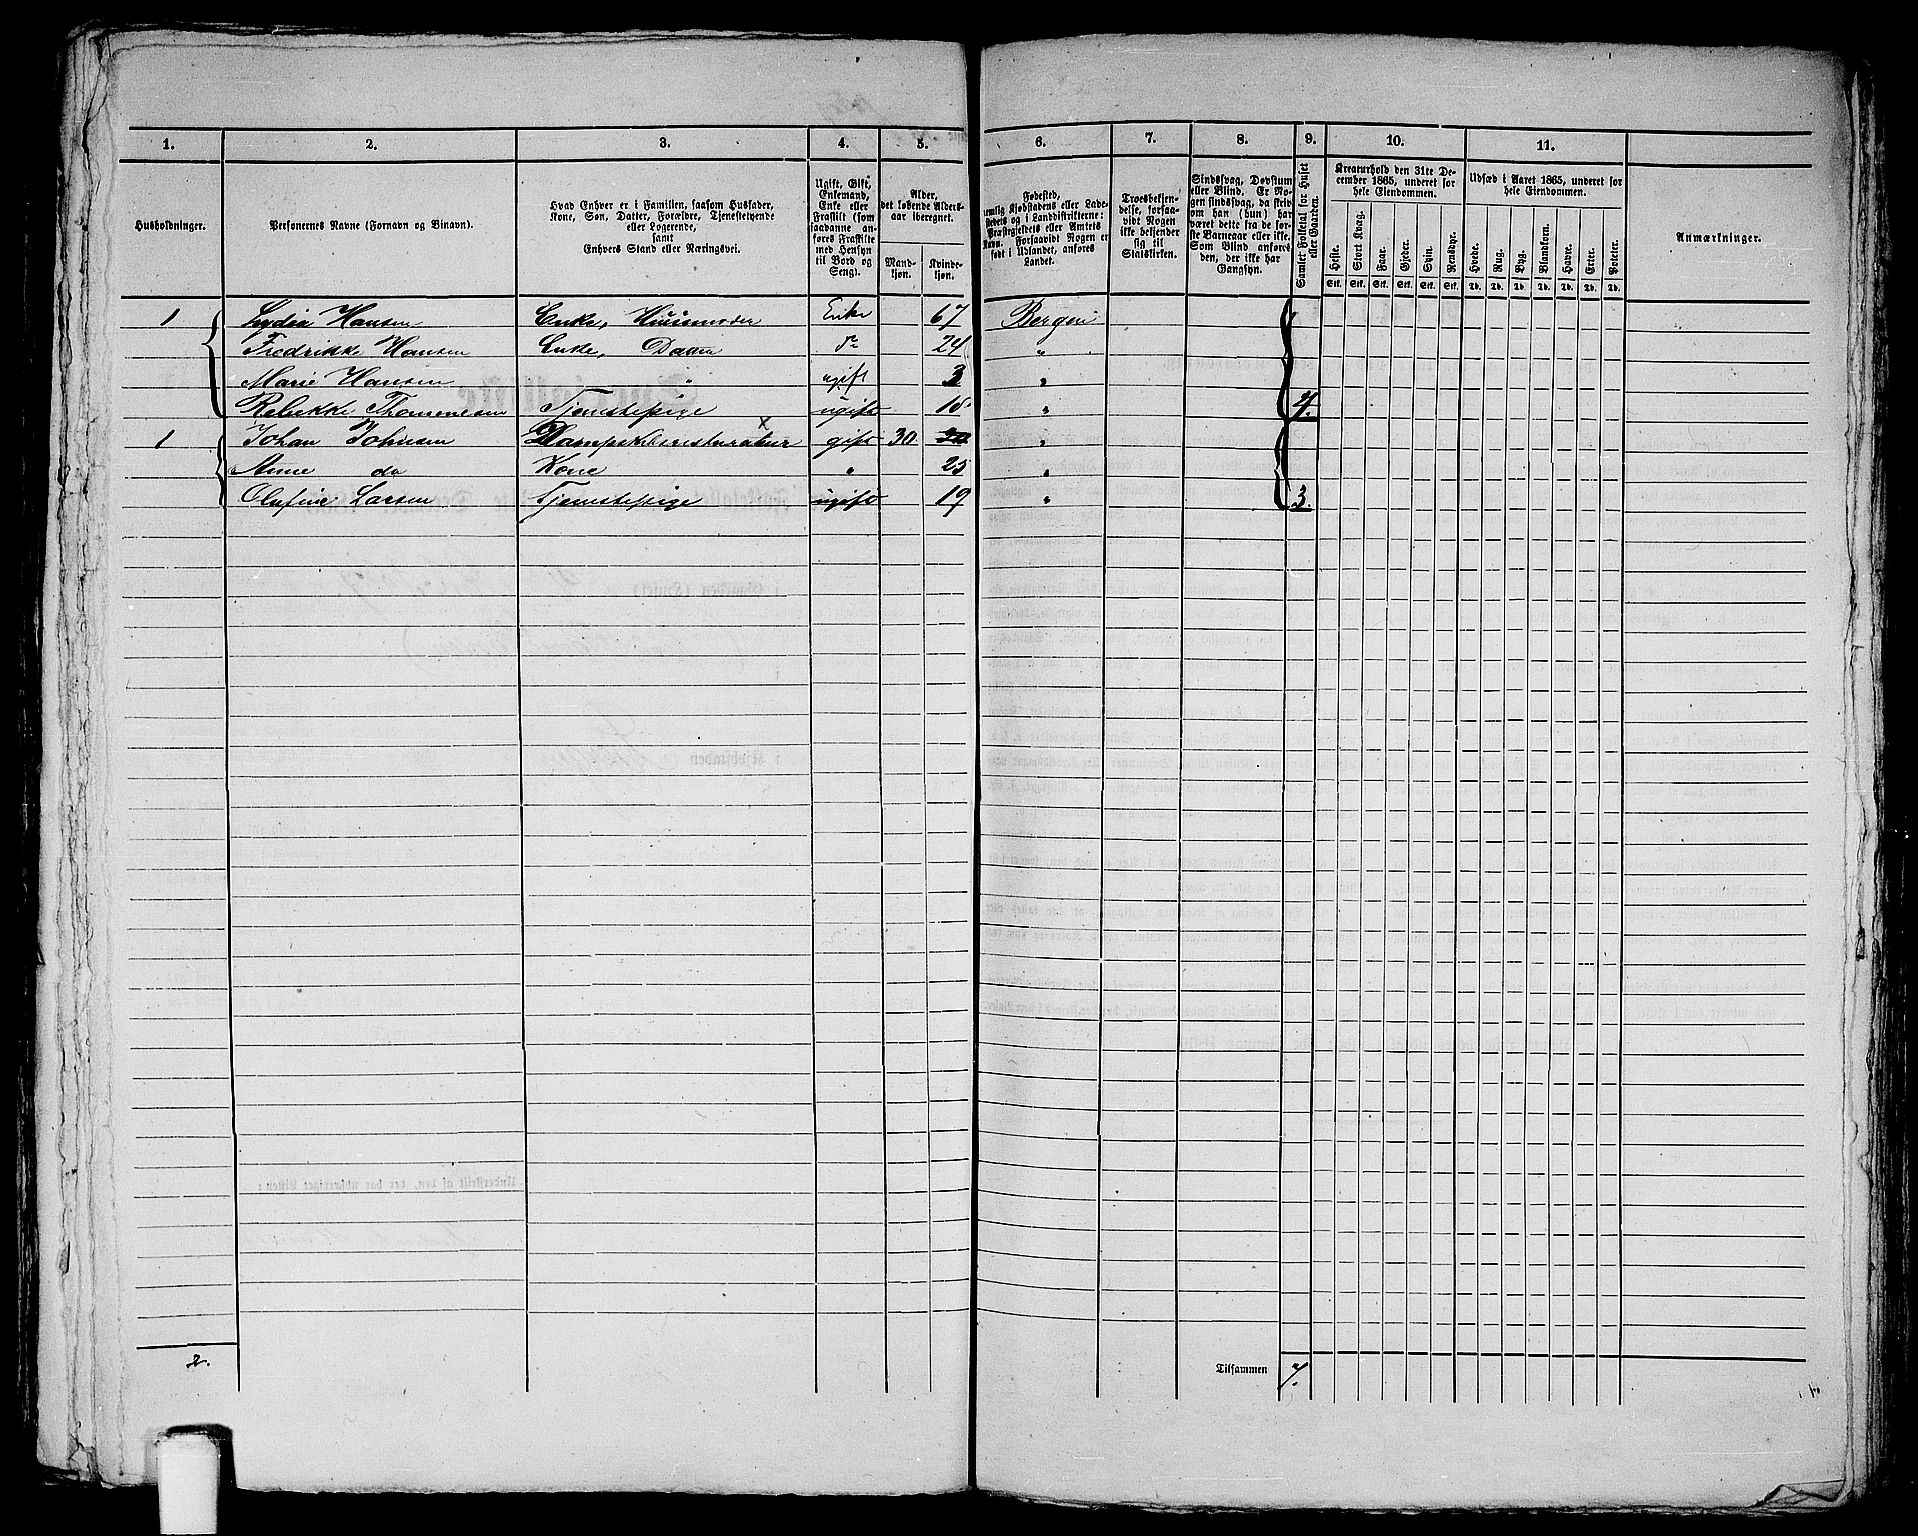 1. 2. 3. 4. 5. 6. 7. 8. 9. 10. 11.
Husholdninger.
Personernes Navne (Fornavn og Binavn).
Hvad Enhver er i Familien, saasom Husfader,
Kone, Søn, Datter, Forældre, Tjenestetyende
eller Logerende,
samt
Enhvers Stand eller Næringsvei.
Ugift, Gift,
Enkemand,
Enke eller
Fraskilt (som
saadanne an-
føres Fraskilte
med Hensyn
til Bord og
Seng).
Alder,
det løbende Alders-
aar iberegnet.
Mand-
kjøn.
Kvinde-
kjøn.
Fødested,
nemlig Kjøbstadens eller Lade-
stedets og i Landdistrikterne:
Præstegjeldets eller Amtets
Navn. Forsaavidt Nogen er
født i Udlandet, anføres
Landet.
Troesbekjen-
delse, forsaa-
vidt Nogen
ikke bekjender
sig til
Statskirken.
Sindssvag, Døvstum
eller Blind. Er No-
gen sindssvag, da skriv
om han (hun) har
været dette fra de før-
ste Barneaar eller ikke.
Som Blind anføres
den, der ikke har
Gangsyn.
Samlet Folketal for Huset
eller Gaarden.
Kreaturhold den 31te De-
cember 1865, underet for
hele Eiendommen.
Heste. Stort Kvæg. Faar. Gjeder. Svin. Rensdyr.
Stk. Stk. Stk. Stk. Stk. Stk.
Udsæd i Aaret 1865, underet for
hele Eiendommen.
Hvede. Rug. Byg. Blandkorn. Havre. Erter. Poteter.
Td. Td. Td. Td. Td. Td. Td.
Anmærkninger.
1 Lydia Hansen Enke, Huusmoder Enke 67 Bergen
Fredrikke Hansen Enke, Datter do 24 "
Marie Hansen " ugift 3 "
Rebekke Thomenesen Tjenestepige ugift 18 " 4.
1 Johan Johnsen gift 30 "
Anne do Kone " 25 "
Olufine Larsen Tjenestepige ugift 19 " 3.
2. Tilsammen 7.